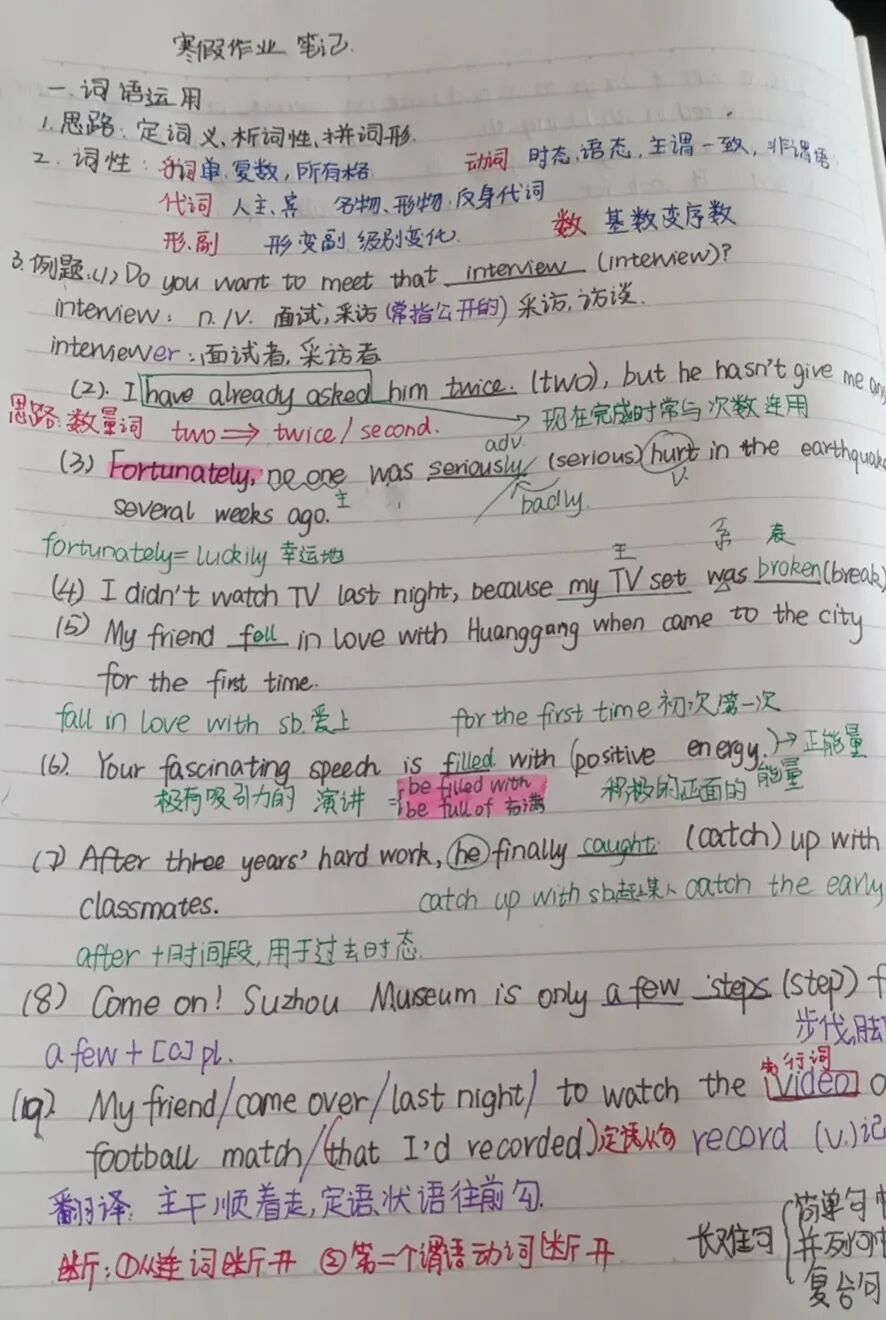 寒假作业 笔记.
一.词语运用
1.思路：定词义、析词性、拼词形.
2. 词性：名词 单.复数，所有格 动词 时态,语态,主谓一致,非谓语
代词 人主、宾 名物、形物.反身代词
形.副 形变副 级别变化. 数 基数变序数
3.例题:(1) Do you want to meet that interview (interview)?
interview: n./v. 面试,采访(常指公开的) 采访,访谈.
interviewer:面试者,采访者
(2). I have already asked him twice. (two), but he hasn't give me any
思路:数量词 two⇒twice/second. 现在完成时常与次数连用
adv.
(3) Fortunately, no one was seriously (serious) hurt in the earthquake
several weeks ago. 主 badly. v.
fortunately=luckily 幸运地 主 系 表
(4) I didn't watch TV last night, because my TV set was broken(break)
(5) My friend fell in love with Huanggang when came to the city
for the first time.
fall in love with sb.爱上 for the first time初次/第一次
(6). Your fascinating speech is filled with (positive energy.)→正能量
极有吸引力的 演讲 ={be filled with 积极的正面的 能量
be full of 充满
(7) After three years' hard work, he finally caught (catch) up with
classmates. catch up with sb.赶上某人 catch the early
after+时间段,用于过去时态.
(8) Come on! Suzhou Museum is only a few steps (step) f
步伐,
a few+[C]pl. 先行词
My friend/come over/last night/ to watch the video o
football match/(that I'd recorded.)定语从句 record (v.)记
翻译：主干顺着走,定语、状语往前勾.
断:①从连词断开 ②第二个谓语动词断开 长难句{简单句
并列句
复合句